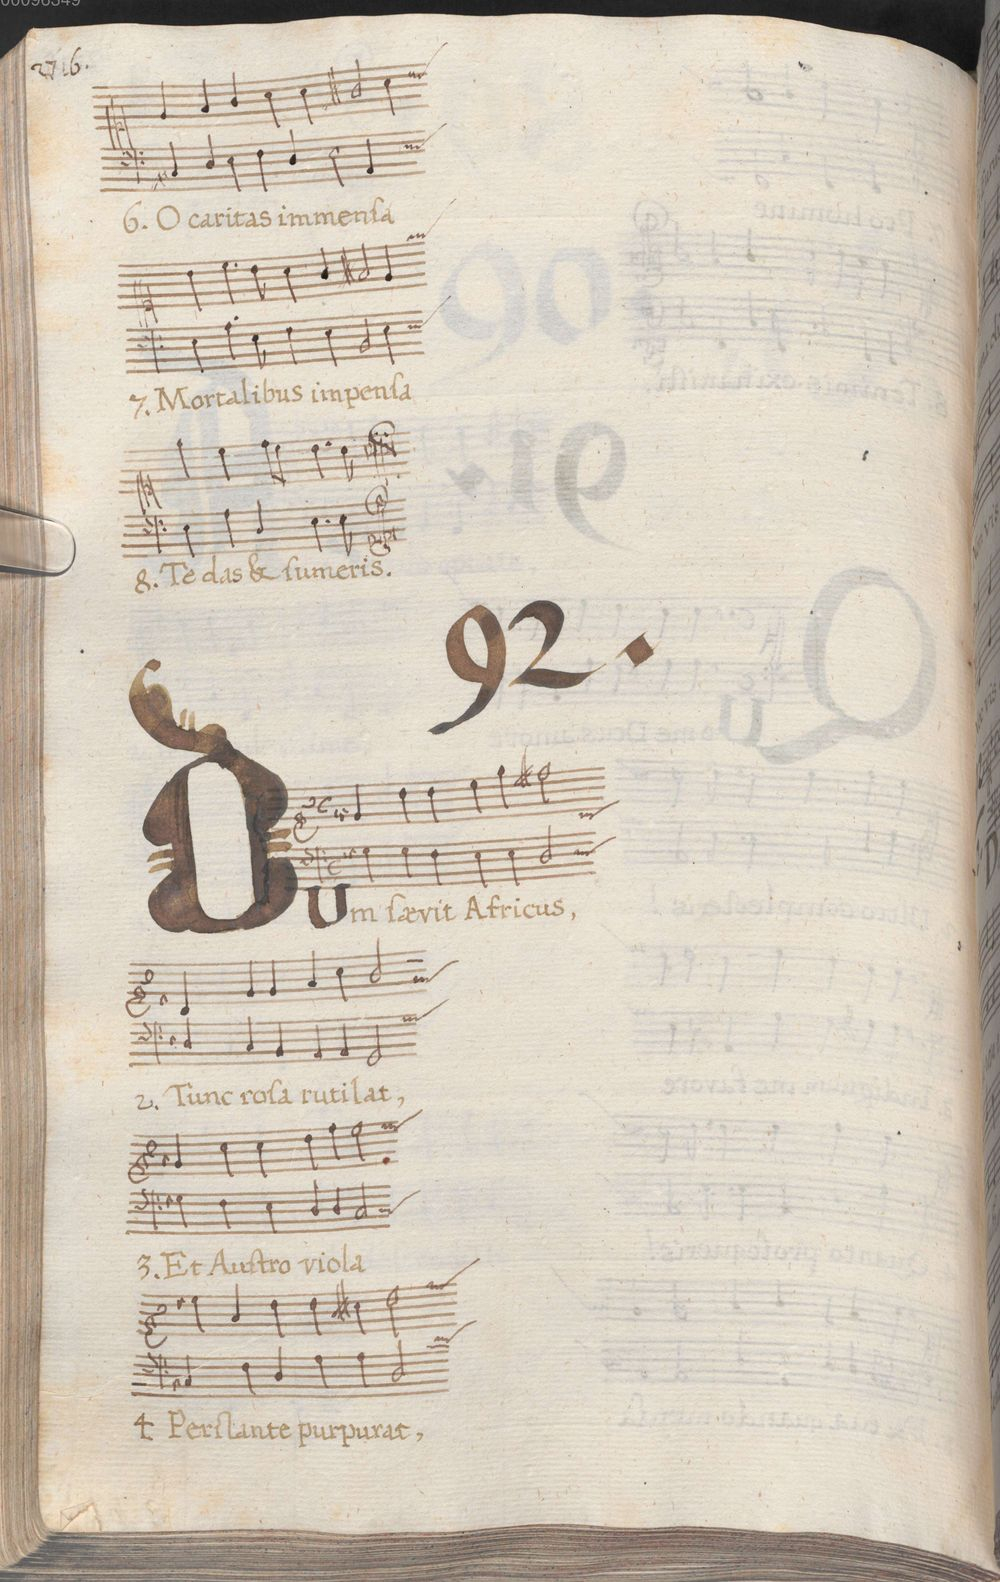 00096349
2716.
6. O caritas immenſa
7. Mortalibus impenſa
8. Te das & ſumeris.
92.
DUm ſævit Africus,
2. Tunc roſa rutilat,
3. Et Auſtro viola
4 Perſtante purpurat,